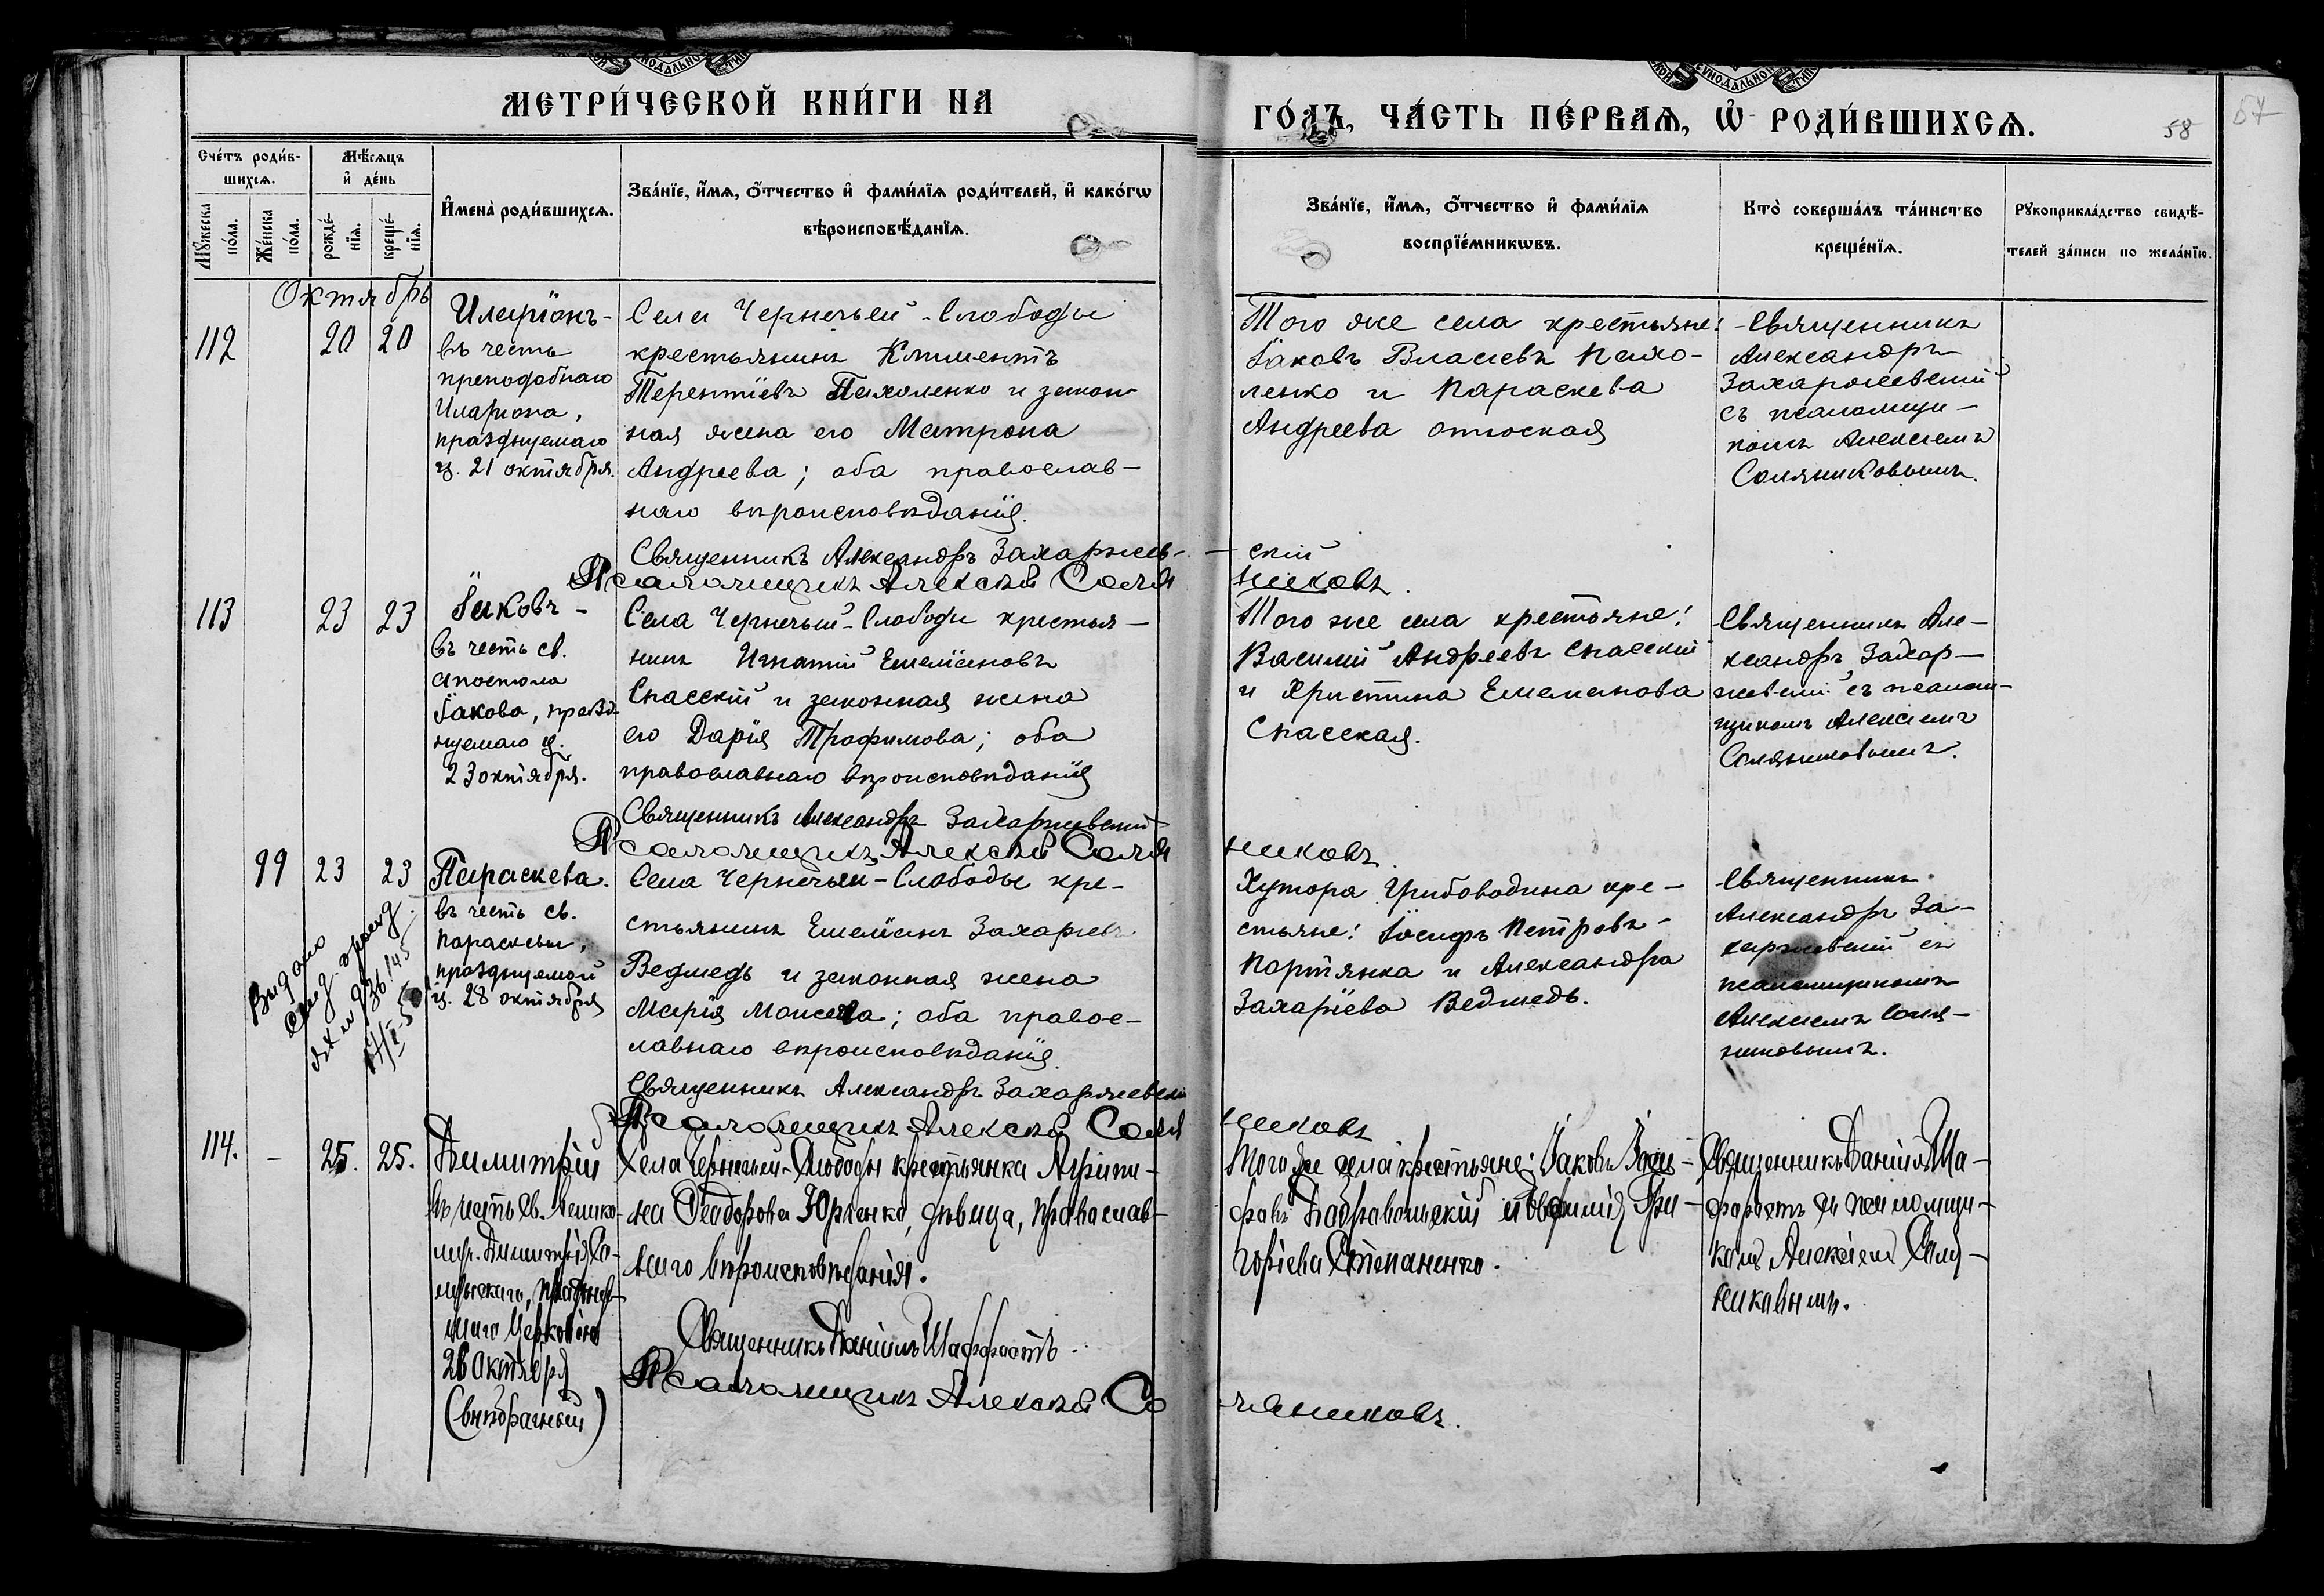 МЕТРИ́ЧЕСКОЙ КНИ́ГИ НА
ГО́ДЪ, ЧА́СТЬ ПЕ́РВАѦ, Ѡ РОДИ́ВШИХСѦ.
58
57
Сче́тъ роди́в-
шихсѧ.
Мѣ́сѧцъ
и҆ де́нь
Мꙋ́жеска
по́ла.
Же́нска
по́ла.
рожде́-
нїѧ.
креще́-
нїѧ.
И҆мена̀ роди́вшихсѧ.
Зва́нїе, и҆́мѧ, ѻ҆́тчество и҆ фами́лїѧ роди́телей, и҆ како́гѡ
вѣроисповѣ́данїѧ.
Зва́нїе, и҆́мѧ, ѻ҆́тчество и҆ фами́лїѧ
воспрїе́мникѡвъ.
Кто̀ соверша́лъ та́инство
креще́нїѧ.
Рꙋкоприкла́дство свидѣ́-
телей за́писи по жела́нїю.
Октябрь
112
20
20
Иларіонъ-
въ честь
преподобнаго
Илариона,
празднуемаго
ц. 21 октября.
Села Чернечьей-Слободы
крестьянинъ Климентъ
Терентіевъ Пахоленко и закон
ная жена его Матрона
Андреева; оба православ-
наго вѣроисповѣданія.
Священникъ Александръ Захаржев-
Псаломщикъ Алексѣй Соля
Того же села крестьяне:
Іаковъ Власіевъ Пахо-
ленко и Параскева
Андреева
скій
никовъ.
-Священникъ
Александръ
Захаржевскій
съ псаломщи-
комъ Алексіемъ
Солянниковымъ.
113
23
23
Іаковъ-
въ честь св.
апостола
Іакова, празд-
нуемаго ц.
23 октября.
Села Чернечьей-Слободы крестья-
нинъ Игнатій Емеліановъ
Спасскій и законная жена
его Дарія Трофимова; оба
православнаго вѣроисповѣданія
Священникъ Александръ Захаржевскій
Псаломщикъ Алексѣй Соля
Того же села крестьяне:
Василій Андреевъ Спасскій
и Христина Емельянова
Спасская.
никовъ
Священникъ Але-
ксандръ Захар-
жевскій съ псалом-
щикомъ Алексіемъ
Соляниковымъ.
99
23
23
Параскева.
въ честь св.
Параскевы,
празднуемой
ц. 28 октября
Выдано
Села Чернечьей-Слободы кре-
стьянинъ Емеліанъ Захаріевъ
Ведмедь и законная жена
Марія Моисеева; оба правос-
лавнаго вѣроисповѣданія.
Священникъ Александръ Захаржевскій
Псаломщикъ Алексѣй Соля
Хутора Грибоводина кре-
стьяне: Іосифъ Петровъ-
Портянка и Александра
Захаріева Ведмедь.
никовъ
Священникъ
Александръ За-
харжевскій съ
псаломщикомъ
Алексіемъ Соля-
никовымъ.
114.
-
25.
25.
Димитрій
въ честь Св. Велико-
муч. Димитрія Со-
лунскаго, празднуе-
маго Церковію
26 Октября
(внѣбрачный)
Села Чернечьей-Слободы крестьянка Агрипи-
на Ѳеодорова Юрченко, дѣвица, православ-
наго вѣроисповѣданія.
Священникъ Даніилъ Шаффрастъ.
Псаломщикъ Алексѣй Со
Того же села крестьяне: Іаковъ
Добравольскій и Евфимія Гри-
горіева Степаненко.
ляниковъ.
Священникъ Даніилъ Ша-
съ псаломщи-
комъ Алексіемъ Соля-
никовымъ.